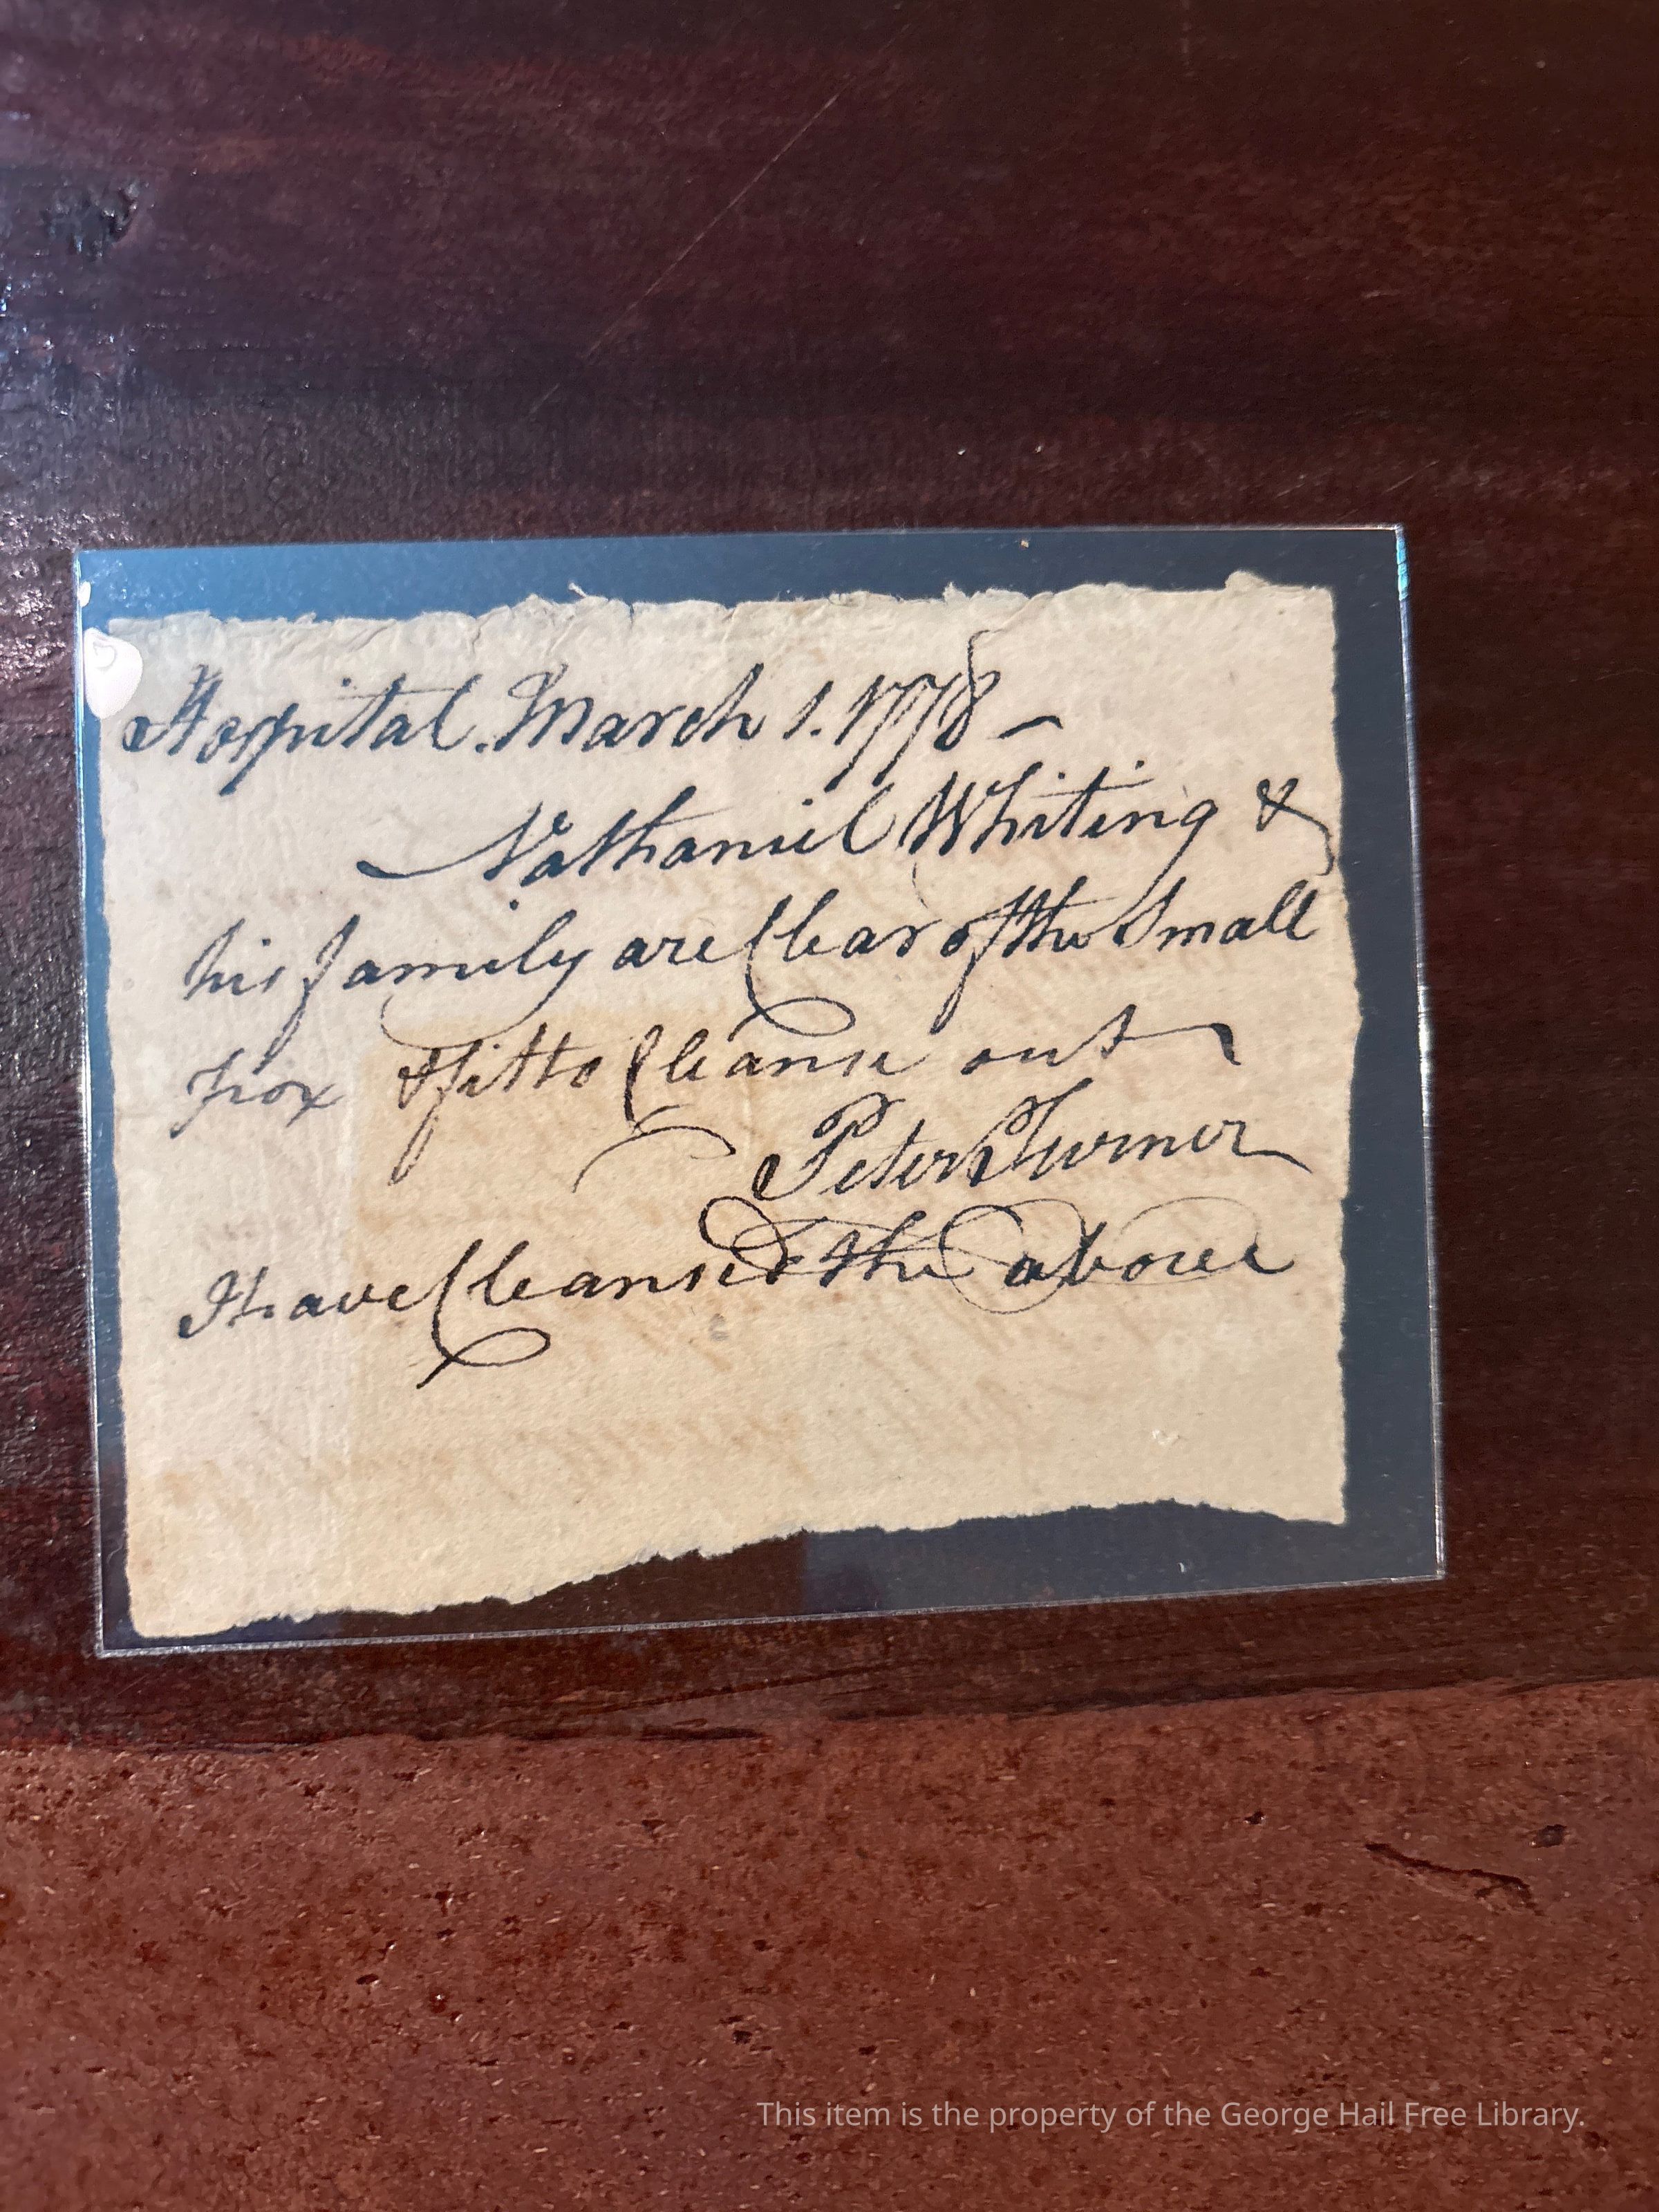 Hospital. March 1. 1778 —
Nathaniel Whiting &
his family are Clear of the Small
pox & fit to Cleanse out
Peter Turner
I have Cleansed the above
This item is the property of the George Hail Free Library.